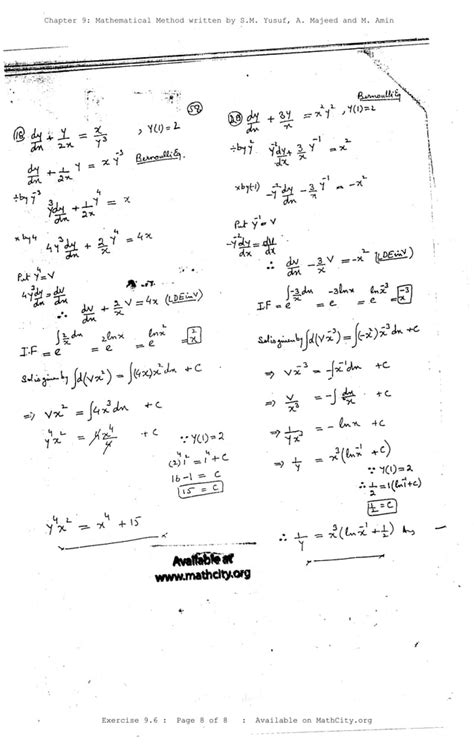 Chapter 9: Mathematical Method written by S.M. Yusuf, A. Majeed and M. Amin
(58)
(18) dy/dx + y/2x = x/y³ , Y(1)=2
dy/dx + 1/2x y = x y⁻³ Bernoulli Eq.
÷ by y⁻³ y³dy/dx + 1/2x y⁴ = x
x by 4 4y³dy/dx + 2/x y⁴ = 4x
Put y⁴ = V
4y³dy/dx = dv/dx
∴ dv/dx + 2/x V = 4x (LDE in V)
I.F = e^∫2/x dx = e^2lnx = e^lnx² = x²
Sol is given by ∫d(Vx²) = ∫(4x)x²dx + C
⇒ Vx² = ∫4x³dx + C
y⁴x² = 4x⁴/4 + C ∵ Y(1)=2
(2)⁴1² = 1⁴ + C
16-1 = C
15 = C
y⁴x² = x⁴ + 15
Bernoulli Eq
(20) dy/dx + 3y/x = x²y² , Y(1)=2
÷ by y² y⁻²dy/dx + 3/x y⁻¹ = x²
x by (-1) -y⁻²dy/dx - 3/x y⁻¹ = -x²
Put y⁻¹ = V
-y⁻²dy/dx = dv/dx
∴ dv/dx - 3/x V = -x² (LDE in V)
I.F = e^∫-3/x dx = e^-3lnx = e^lnx⁻³ = x⁻³
Sol is given by ∫d(Vx⁻³) = ∫(-x²)x⁻³dx + C
⇒ Vx⁻³ = -∫x⁻¹dx + C
⇒ V/x³ = -∫dx/x + C
⇒ 1/yx³ = -lnx + C
⇒ 1/y = x³(lnx⁻¹ + C)
∵ Y(1)=2
∴ 1/2 = 1(ln1⁻¹+C)
1/2 = C
∴ 1/y = x³(lnx⁻¹ + 1/2) Ans
Available at
www.mathcity.org
Exercise 9.6 : Page 8 of 8 : Available on MathCity.org